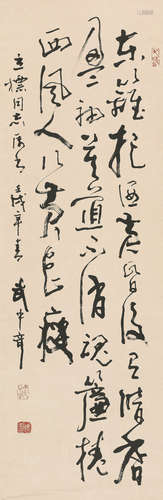 東籬把酒黄昏後有暗香
盈袖莫道不消魂簾捲
西風人比黄花瘦
立標同志属書 壬戌年春 武中奇